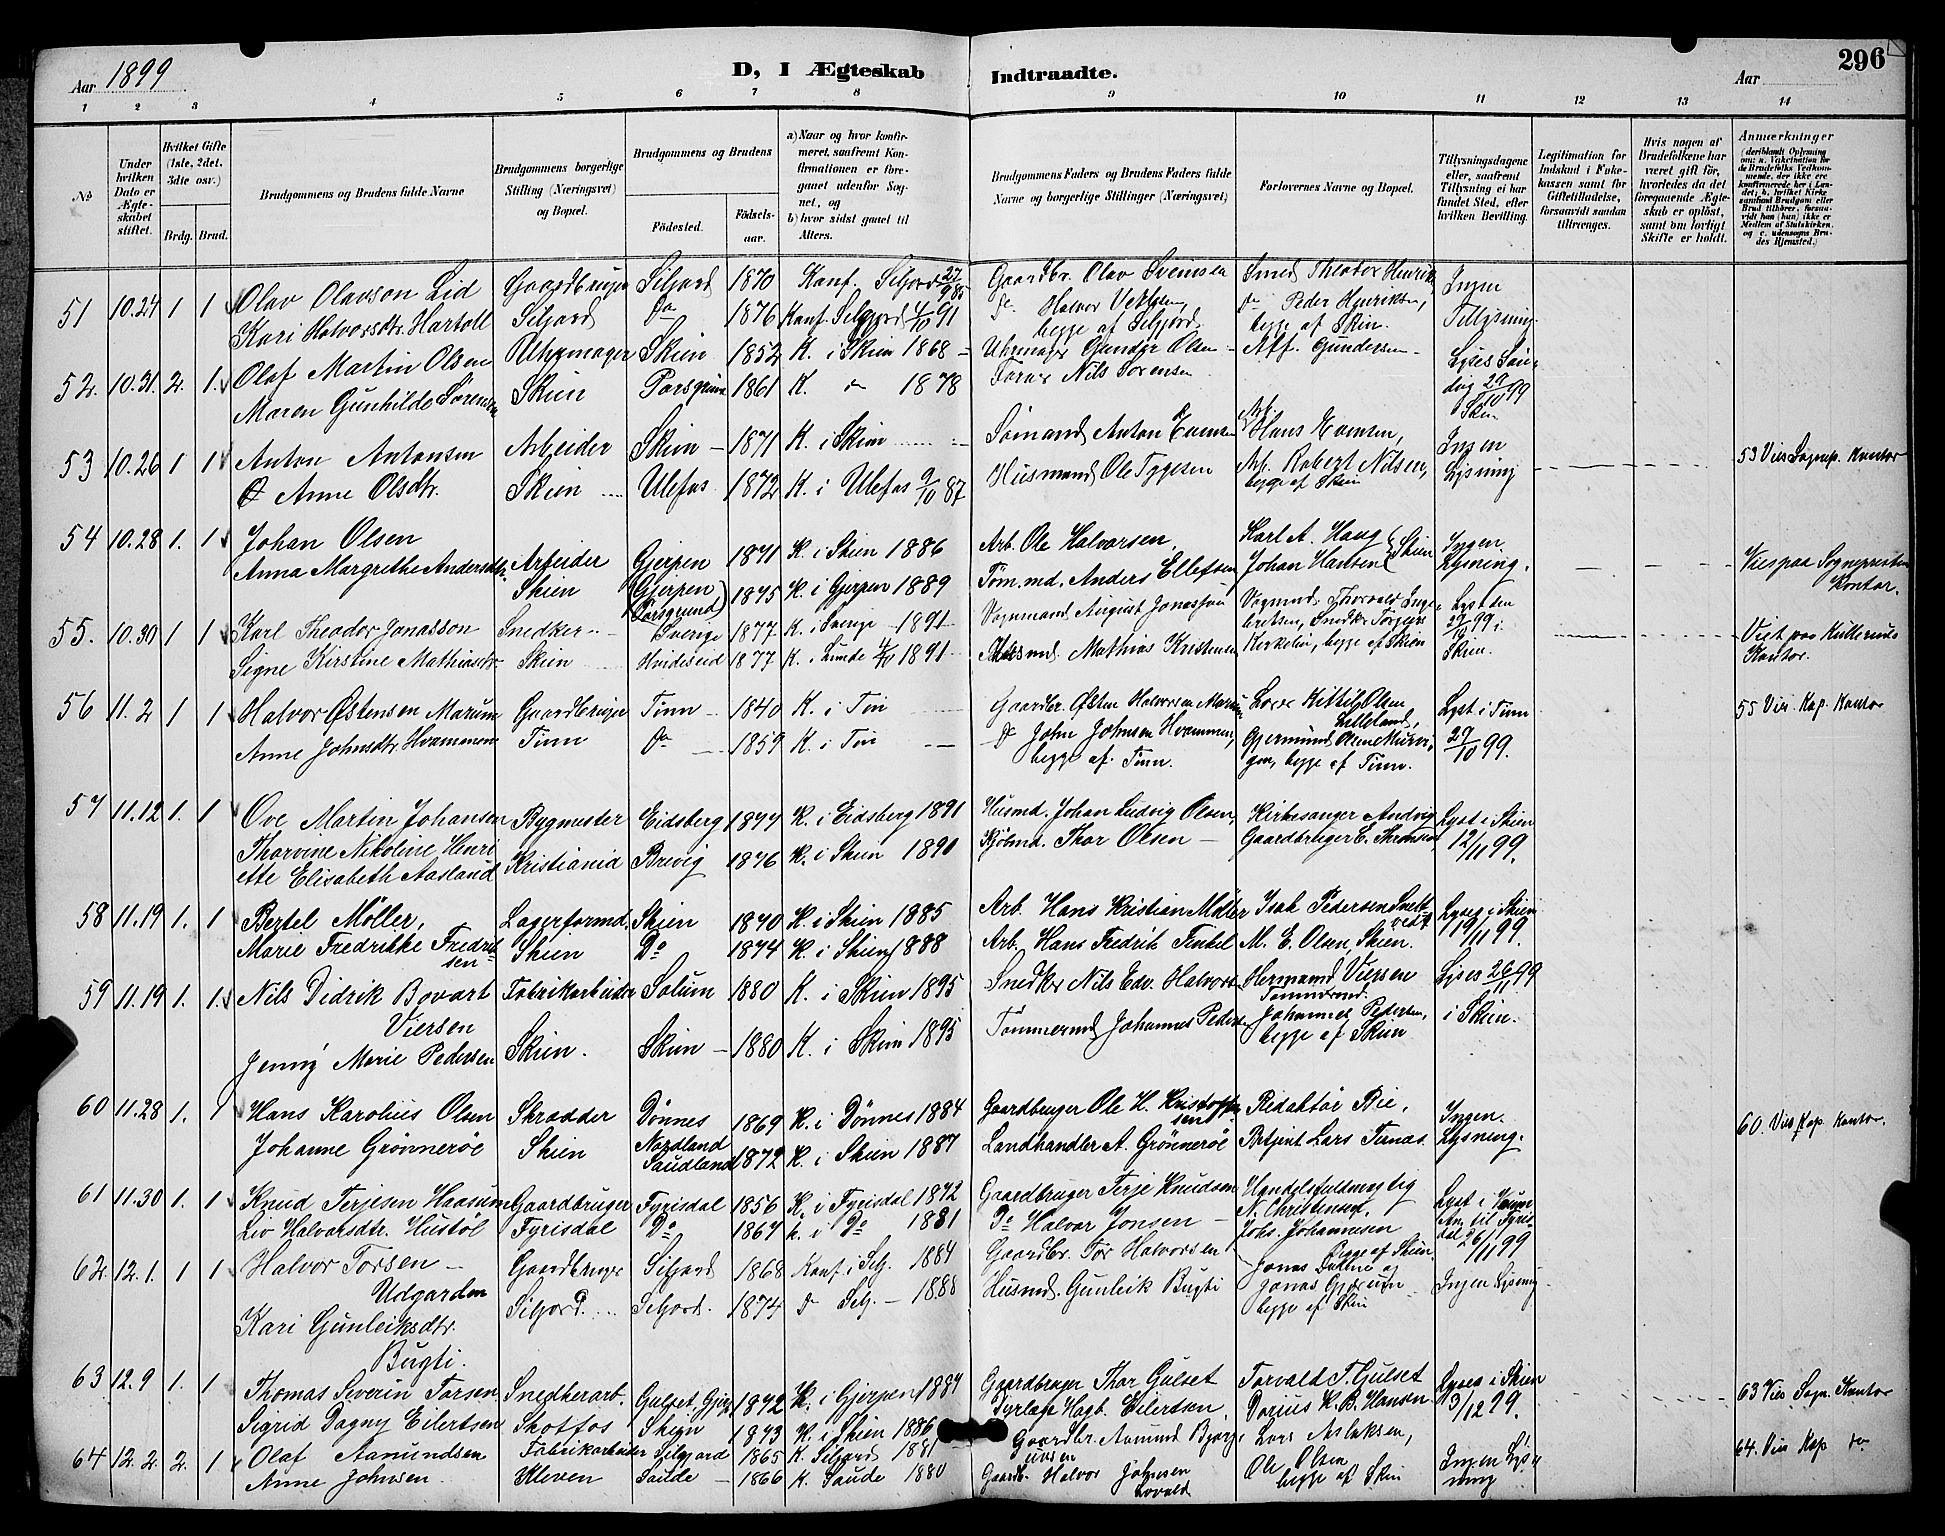 Aar 1899
D, I Ægteskab Indtraadte.
Aar
296
1 2 3 4 5 6 7 8 9 10 11 12 13 14
No
Under hvilken Dato er Ægteskabet stiftet.
Hvilket Gifte (1ste, 2det, 3dte osv.)
Brdg. Brud.
Brudgommens og Brudens fulde Navne
Brudgommens borgerlige Stilling (Næringsvei) og Bopæl.
Brudgommens og Brudens
Fødested.
Fødselsaar.
a) Naar og hvor konfirmeret, saafremt Konfirmationen er foregaaet udenfor Sognet, og
b) hvor sidst gaaet til Alters.
Brudgommens Faders og Brudens Faders fulde Navne og borgerlige Stillinger (Næringsvei)
Forlovernes Navne og Bopæl.
Tillysningsdagene eller, saafremt Tillysning ei har fundet Sted, efter hvilken Bevilling.
Legitimation for Indskud i Enkekassen samt for Giftetilladelse, forsaavidt saadan tiltrænges.
Hvis nogen af Brudefolkene har været gift før, hvorledes da det foregaaende Ægteskab er opløst, samt om lovligt Skifte er holdt.
Anmærkninger
51 10.24 1 1 Olav Olavson Lid Gaardbruger Siljord 1870 Konf. Seljord 27/9 85 Gaardbr. Olav Sveinsen Smed Theodor Henrik Ingen
Kari Halvorsdtr. Hartoll Siljord Do 1876 Konf. Seljord 4/10 91 do Halvor Vetlesen, do Peder Henriksen, Tillysning
begge af Seljord begge af Skien.
52. 10.31. 2. 1. Olaf Martin Olsen Uhrmager Skien 1852 K. i Skien 1868 Uhrmager Gunder Olsen Aff. Gundersen Lyses Søndag 29/10 99
Maren Gunhilde Sørensen Skien Porsgrund 1861 K. do 1878 Nils Sørensen Skien
53 10.26 1 1 Anton Antonsen Arbeider Skien 1871 K. i Skien Sømand Anton Evensen Arb. Hans Evensen, Ingen
Anne Olsdtr. Skien Ulefos 1872 K. i Ulefos 9/10 87 Husmand Ole Tygesen Arb. Robert Nilsen, Lysning 53 Vies Sognep. Kontor
begge af Skien
54 10.28 1. 1 Johan Olsen Arbeider Gjerpen 1871 K. i Skien 1886 Arb. Ole Halvorsen, Karl A. Haug Skien Ingen
Anna Margrethe Andersdtr. Skien Gjerpen (Porsgrund) 1875 K. i Gjerpen 1889 Tøm.md. Anders Ellefsen Johan Hansen Lysning. Vies paa Sognepresten Kontor.
55. 10.30 1 1 Karl Theodor Jonasson Snedker Sverige 1877 K. i Sverige 1891 Vognmand August Jonasson Vognmd. Thorvald Ingebretsen, Snedkr. Torgeir Lyst den 29/10 99 i
Signe Kirstine Mathiasdtr. Skien Hvideseid 1877 K. i Lunde 4/10 1891 Husmd. Mathias Kristensen Kirkelie, begge af Skien Skien. Viet paa Kontor.
56 11.2 1 1 Halvor Østensen Marum Gaardbruger Tinn 1840 K. i Tin Gaardbr. Østen Halvorsen Marum Lærer Kittil Olsen Lyst i Tinn
Anne Johnsdtr. Hvammen Tinn Do 1859 K. i Tin D John Johnsen Hvammen, Gjermund Olsen 29/10 99. 55 Vies Kap. Kontor
begge af Tinn. begge af Tinn.
57 11.12 1. 1 Ove Martin Johansen Bygmester Eidsberg 1877 K. i Eidsberg 1891 Husmd. Johan Ludvig Olsen, Kirkesanger Andvig Lyst i Skien
Thorvine Nikoline Henriette Elisabeth Aasland Kristiania Brevig 1876 K. i Skien 1890 Sjømd. Thor Olsen Gaardbruger E. Thronsen 12/11 99.
58 11.19 1. 1 Bertel Møller, Lagerformd. Skien 1870 K. i Skien 1885 Arb. Hans Kristian Møller Isak Pedersen Lyses i Skien
Marie Fredrikke Fredriksen Skien Do 1874 K. i Skien 1888 Arb. Hans Fredrik Finkel M. E. Olsen, Skien. 19/11 99.
59 11.19 1. 1. Nils Didrik Bovart Fabrikarbeider Solum 1880 K. i Skien 1895 Snedker Nils Edv. Halvorsen Hermand Viersen Lyses 26/11 99
Viersen Tømmermd. Johannes Pedersen, i Skien.
Jenny Marie Pedersen Skien. Skien 1880 K. i Skien 1895 Tømmermd. Johannes Pedersen begge af Skien
60 11.28 1. 1 Hans Karolius Olsen Skrædder Dønnes Nordland 1869 K. i Dønnes 1884 Gaardbruger Ole H. Kristoffersen Redaktør Bie, Ingen
Johanne Grønnerøe Skien Saudland 1872 K. i Skien 1887 Landhandler A. Grønnerøe Betjent Lars Lysning. 60. Vies Kap. Kontor.
61 11.30 1. 1 Knud Terjesen Haasum Gaardbruger Fyrisdal 1856 K. i Fyrisdal 1872 Gaardbruger Terje Knudsen Handelsfuldmægtig Lyst i
Liv Halvorsdtr. Hustøl Fyrisdal Do 1864 K. i Do 1881 Do Halvor Jonsen N. Christensen, Johs. Johannesen 26/11 99
begge af Skien.
62. 12.1. 1 1 Halvor Torsen Gaardbruger Siljord 1868 Konf. i Selj. 1884 Gaardbr. Tor Halvorsen Jonas og
Udgarden Jonas
Kari Gunleiksdtr. Siljord. Seljord. 1874 do Selj. 1888 Husmd. Gunleik Bugti begge af Skien Ingen Lysning
Bugti.
63 12.9 1. 1 Thomas Severin Torsen Snedkerarb. Gulset, Gjerp. 1872 K. i Gjerpen 1884 Gaardbruger Thor Gulset Torvald T. Gulset Lyses i Skien
Sigrid Dagny Eilertsen Skotfos Skien 1873 K. i Skien 1886 Hagb. Eilertsen Darius K. B. Hansen 3/12 99. 63 Vies Sogn. Kontor
64 12.2. 2. 1 Olaf Aanundsen Fabrikarbeider Siljord 1865 K. Seljord 1881 Gaardbr. Aanund Lars Aslaksen,
Anne Johnsen Kleven Saude 1866 K. Saude 1880 Gaardb. Halvor Johnsen Ole Olsen Ingen Lysning 64. Vies Kap. do
begge af Skien